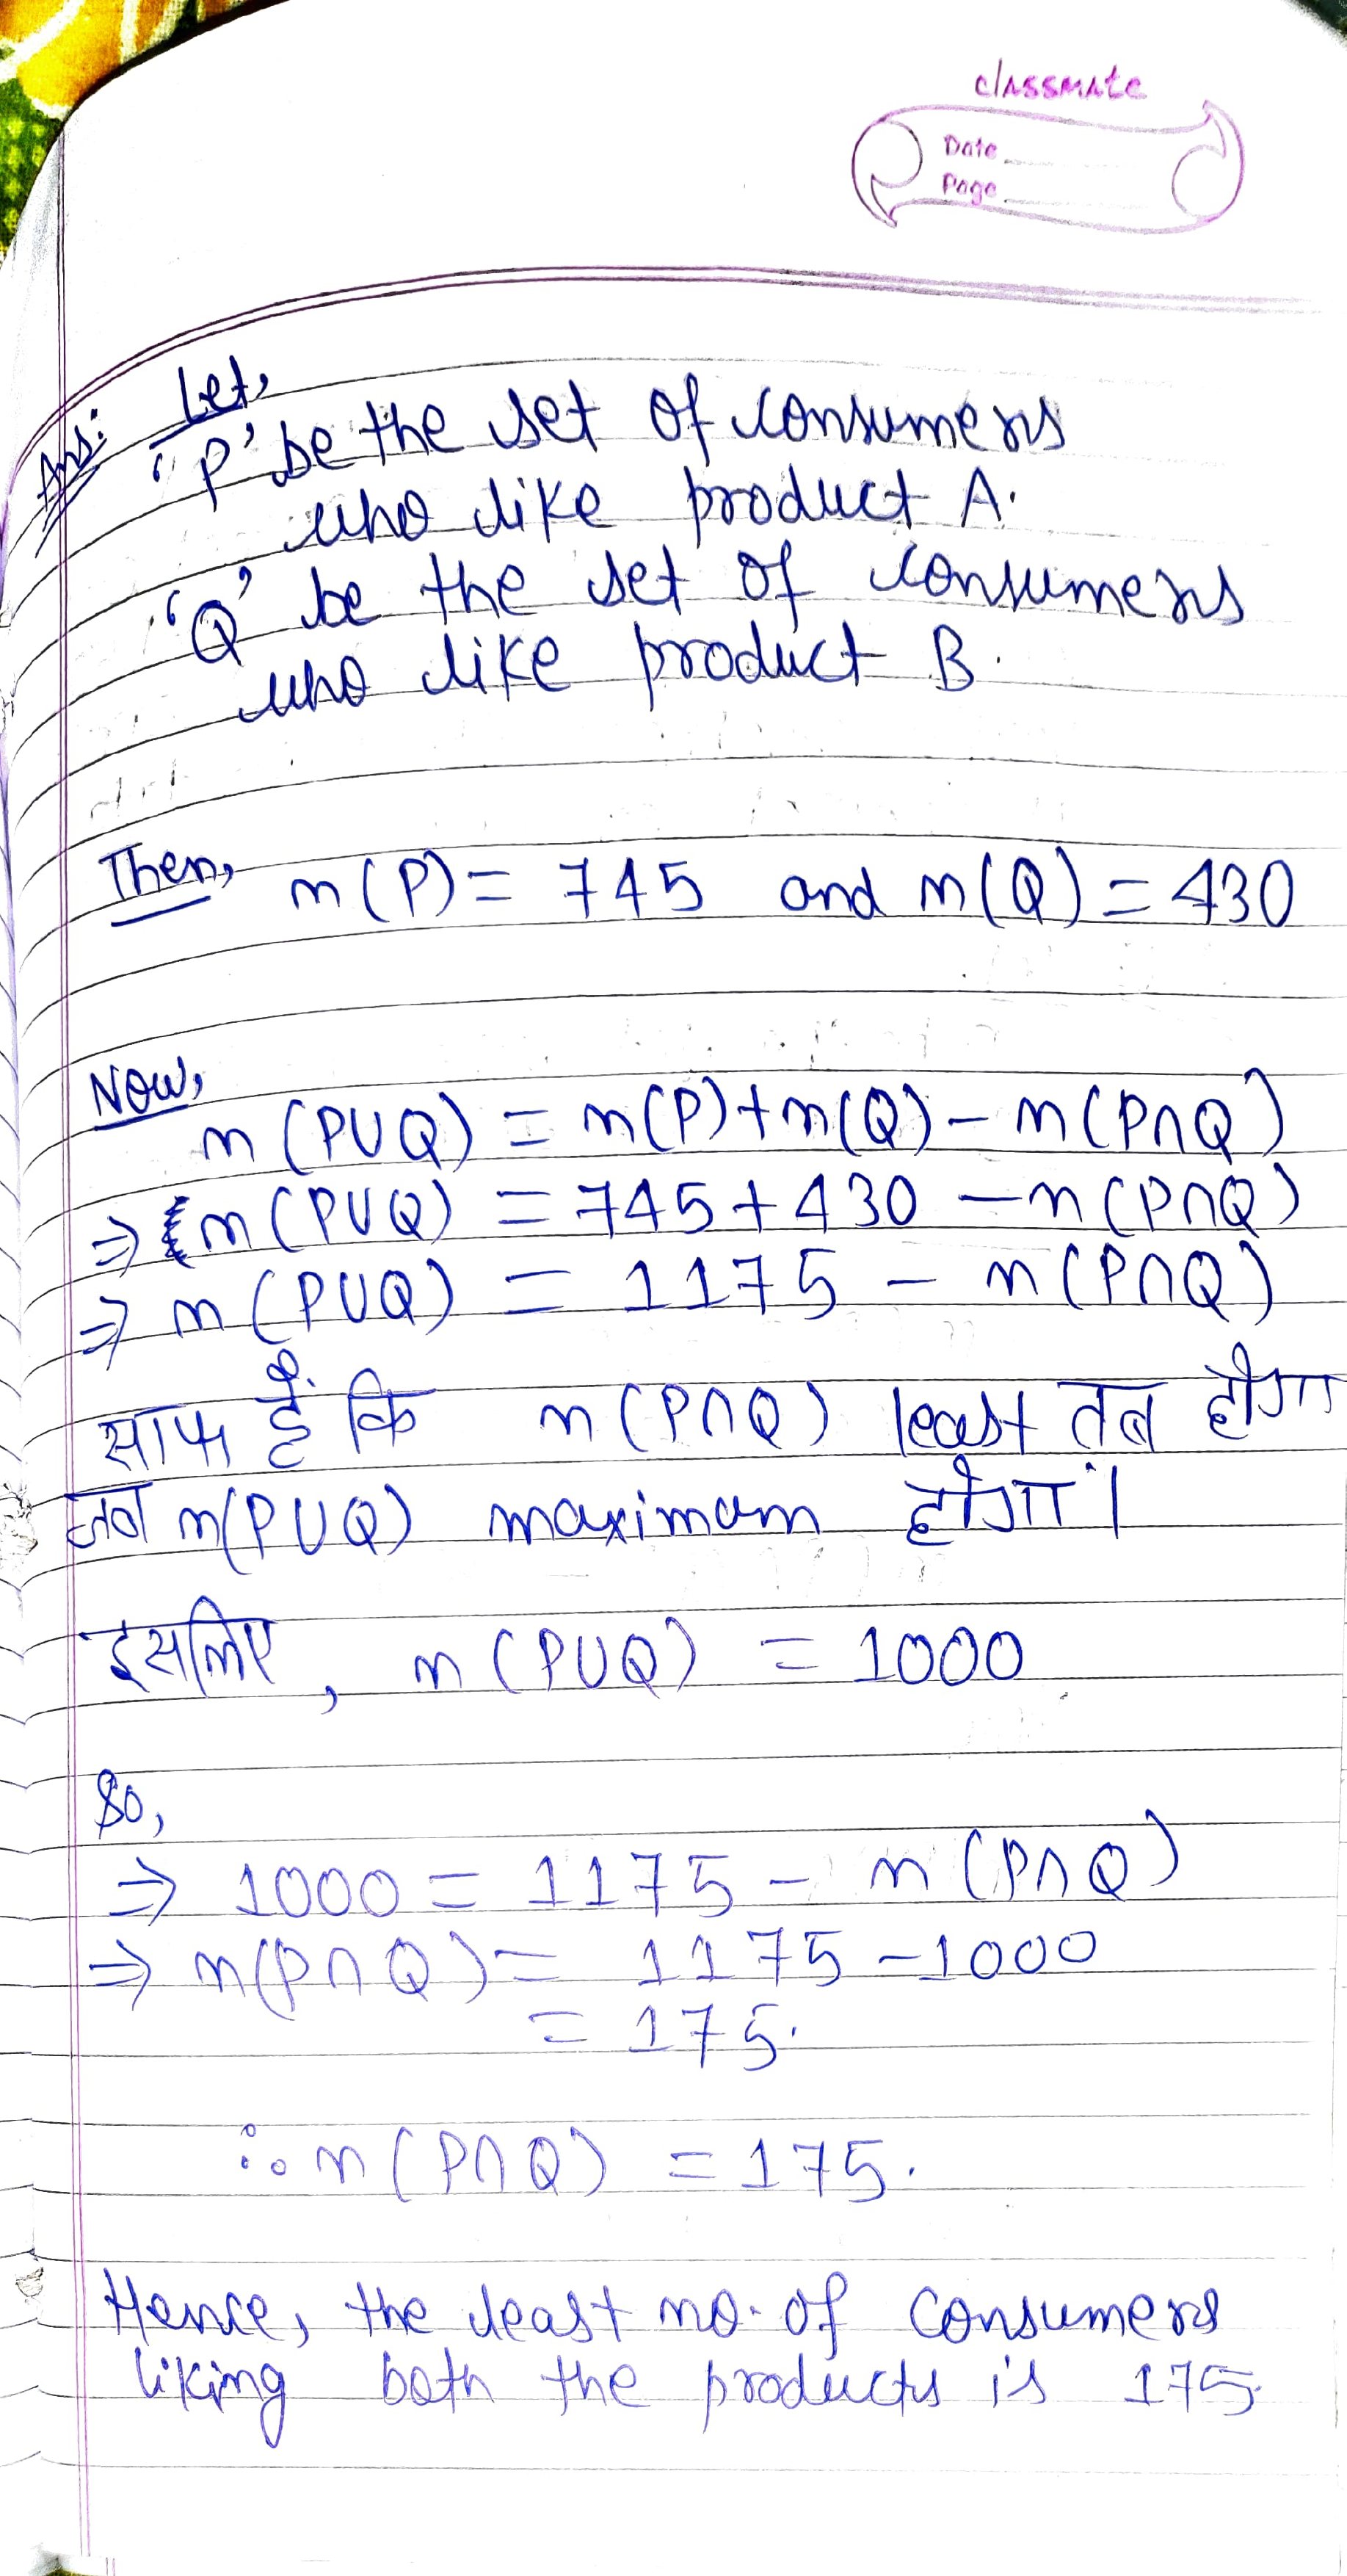 classmate
Date
Page
Ans:
Let,
'P' be the set of consumers
who like product A.
'Q' be the set of consumers
who like product B.
Then, n(P) = 745 and n(Q) = 430
Now,
n(P∪Q) = n(P)+n(Q) – n(P∩Q)
⇒ n(P∪Q) = 745+430 – n(P∩Q)
⇒ n(P∪Q) = 1175 – n(P∩Q)
साफ है कि n(P∩Q) least तब होगा
जब n(P∪Q) maximum होगा।
इसलिए, n(P∪Q) = 1000
So,
⇒ 1000 = 1175 – n(P∩Q)
⇒ n(P∩Q) = 1175 – 1000
= 175.
∴ n(P∩Q) = 175.
Hence, the least no. of consumers
liking both the products is 175.